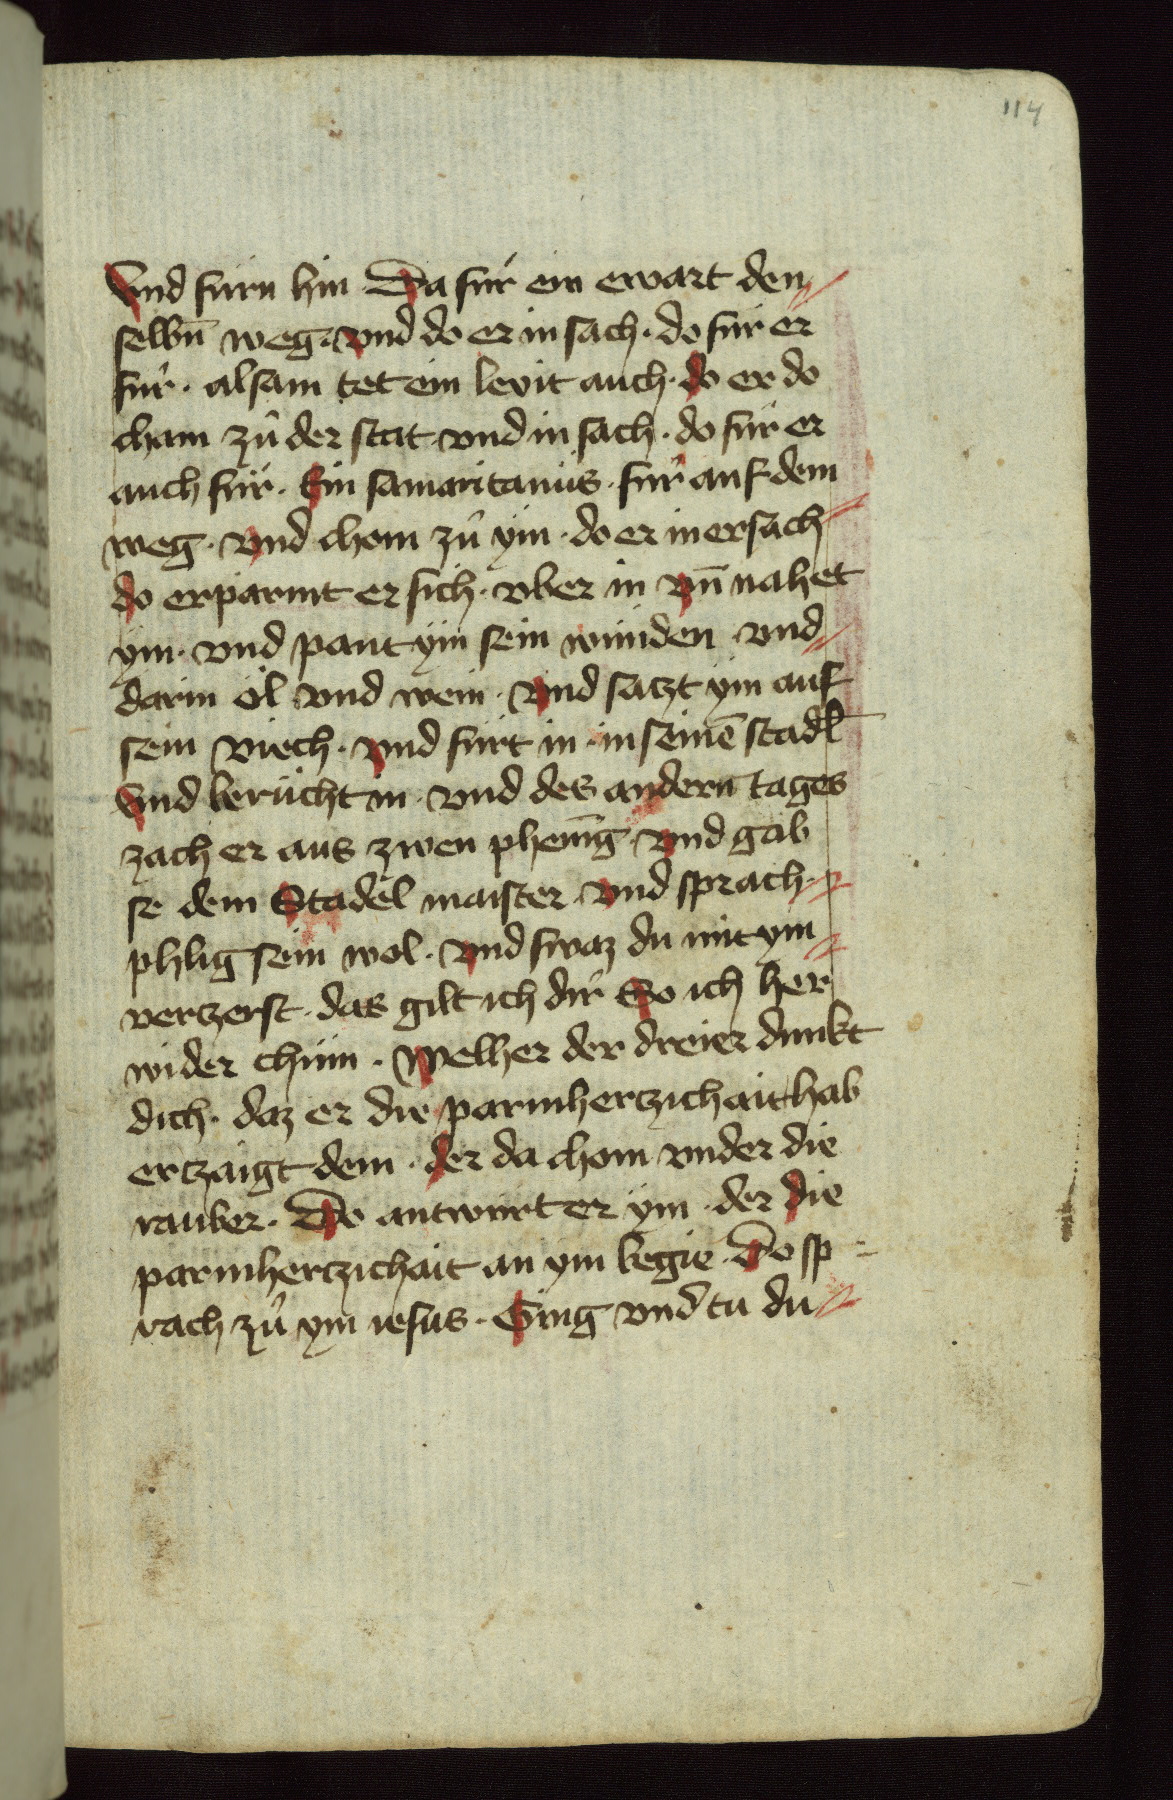 114
Vnd furn hin Da fur ein ewart den
selbn̄ weg. vnd do er in sach. do fur er
fur. alsam tet ein levit auch. do er do
cham zů der stat vnd in sach. do fur er
auch fur. Ein samaritanus. fur auf dem
weg. vnd chom zů ym. do er in ersach
do erparmt er sich. vber in vn̄ nahet
ym. vnd pant ym sein wunden vnd
darin öl vnd wein. vnd satzt ym auf
sein viech. vnd furt in. in seinē stadl
Vnd berucht in. vnd des andern tages
zach er aus zwen phenīg vnd gab
se dem Stadel maister. vnd sprach.
phlig sein wol. vnd swaz du mit ym
vertzerst. das gilt ich dir So ich her
wider chum. Welher der dreier dunkt
dich. daz er die parmhertzichait hab
ertzaigt dem. der da chom vnder die
rauber. Do antwurt er ym. der die
parmhertzichait an ym begie. Do sp
rach zů ym iesus. Ging vnd tu du